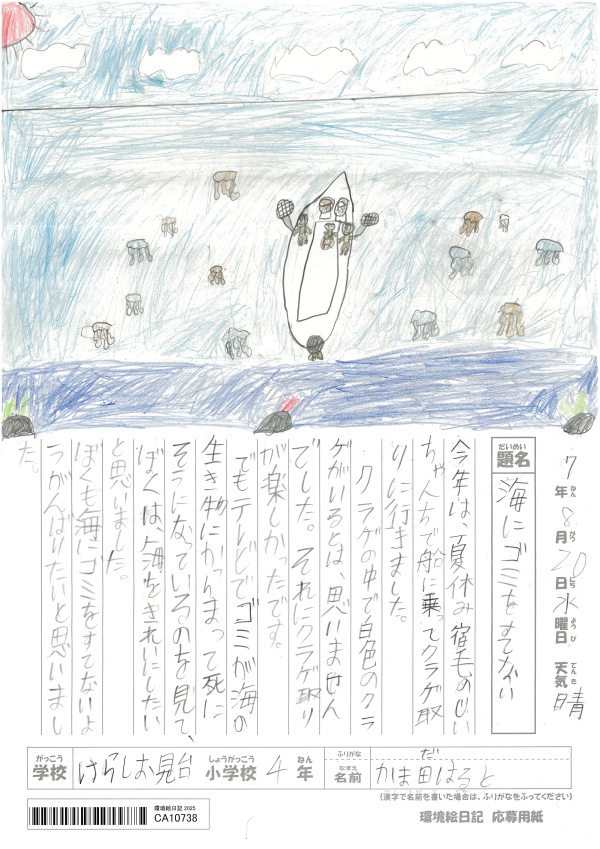 7年ねん8月がつ20日にち水曜日ようび 天気てんき 晴
題名だいめい 海にゴミをすてない
今年は、夏休み宿毛のじい
ちゃんちで船に乗ってクラゲ取
りに行きました。
クラゲの中で白色のクラ
ゲがいるとは、思いません
でした。それにクラゲ取り
が楽しかったです。
でもテレビでゴミが海の
生き物にからまって死に
そうになっているのを見て、
ぼくは、海をきれいにしたい
と思いました。
ぼくも海にゴミをすてないよ
うがんばりたいと思いまし
た。
がっこう 学校 けらしお見台 しょうがっこう 小学校 4 ねん 年
ふりがな だ
なまえ 名前 かま田はると
(漢字で名前を書いた場合は、ふりがなをふってください)
環境絵日記 2025
CA10738
環境絵日記 応募用紙